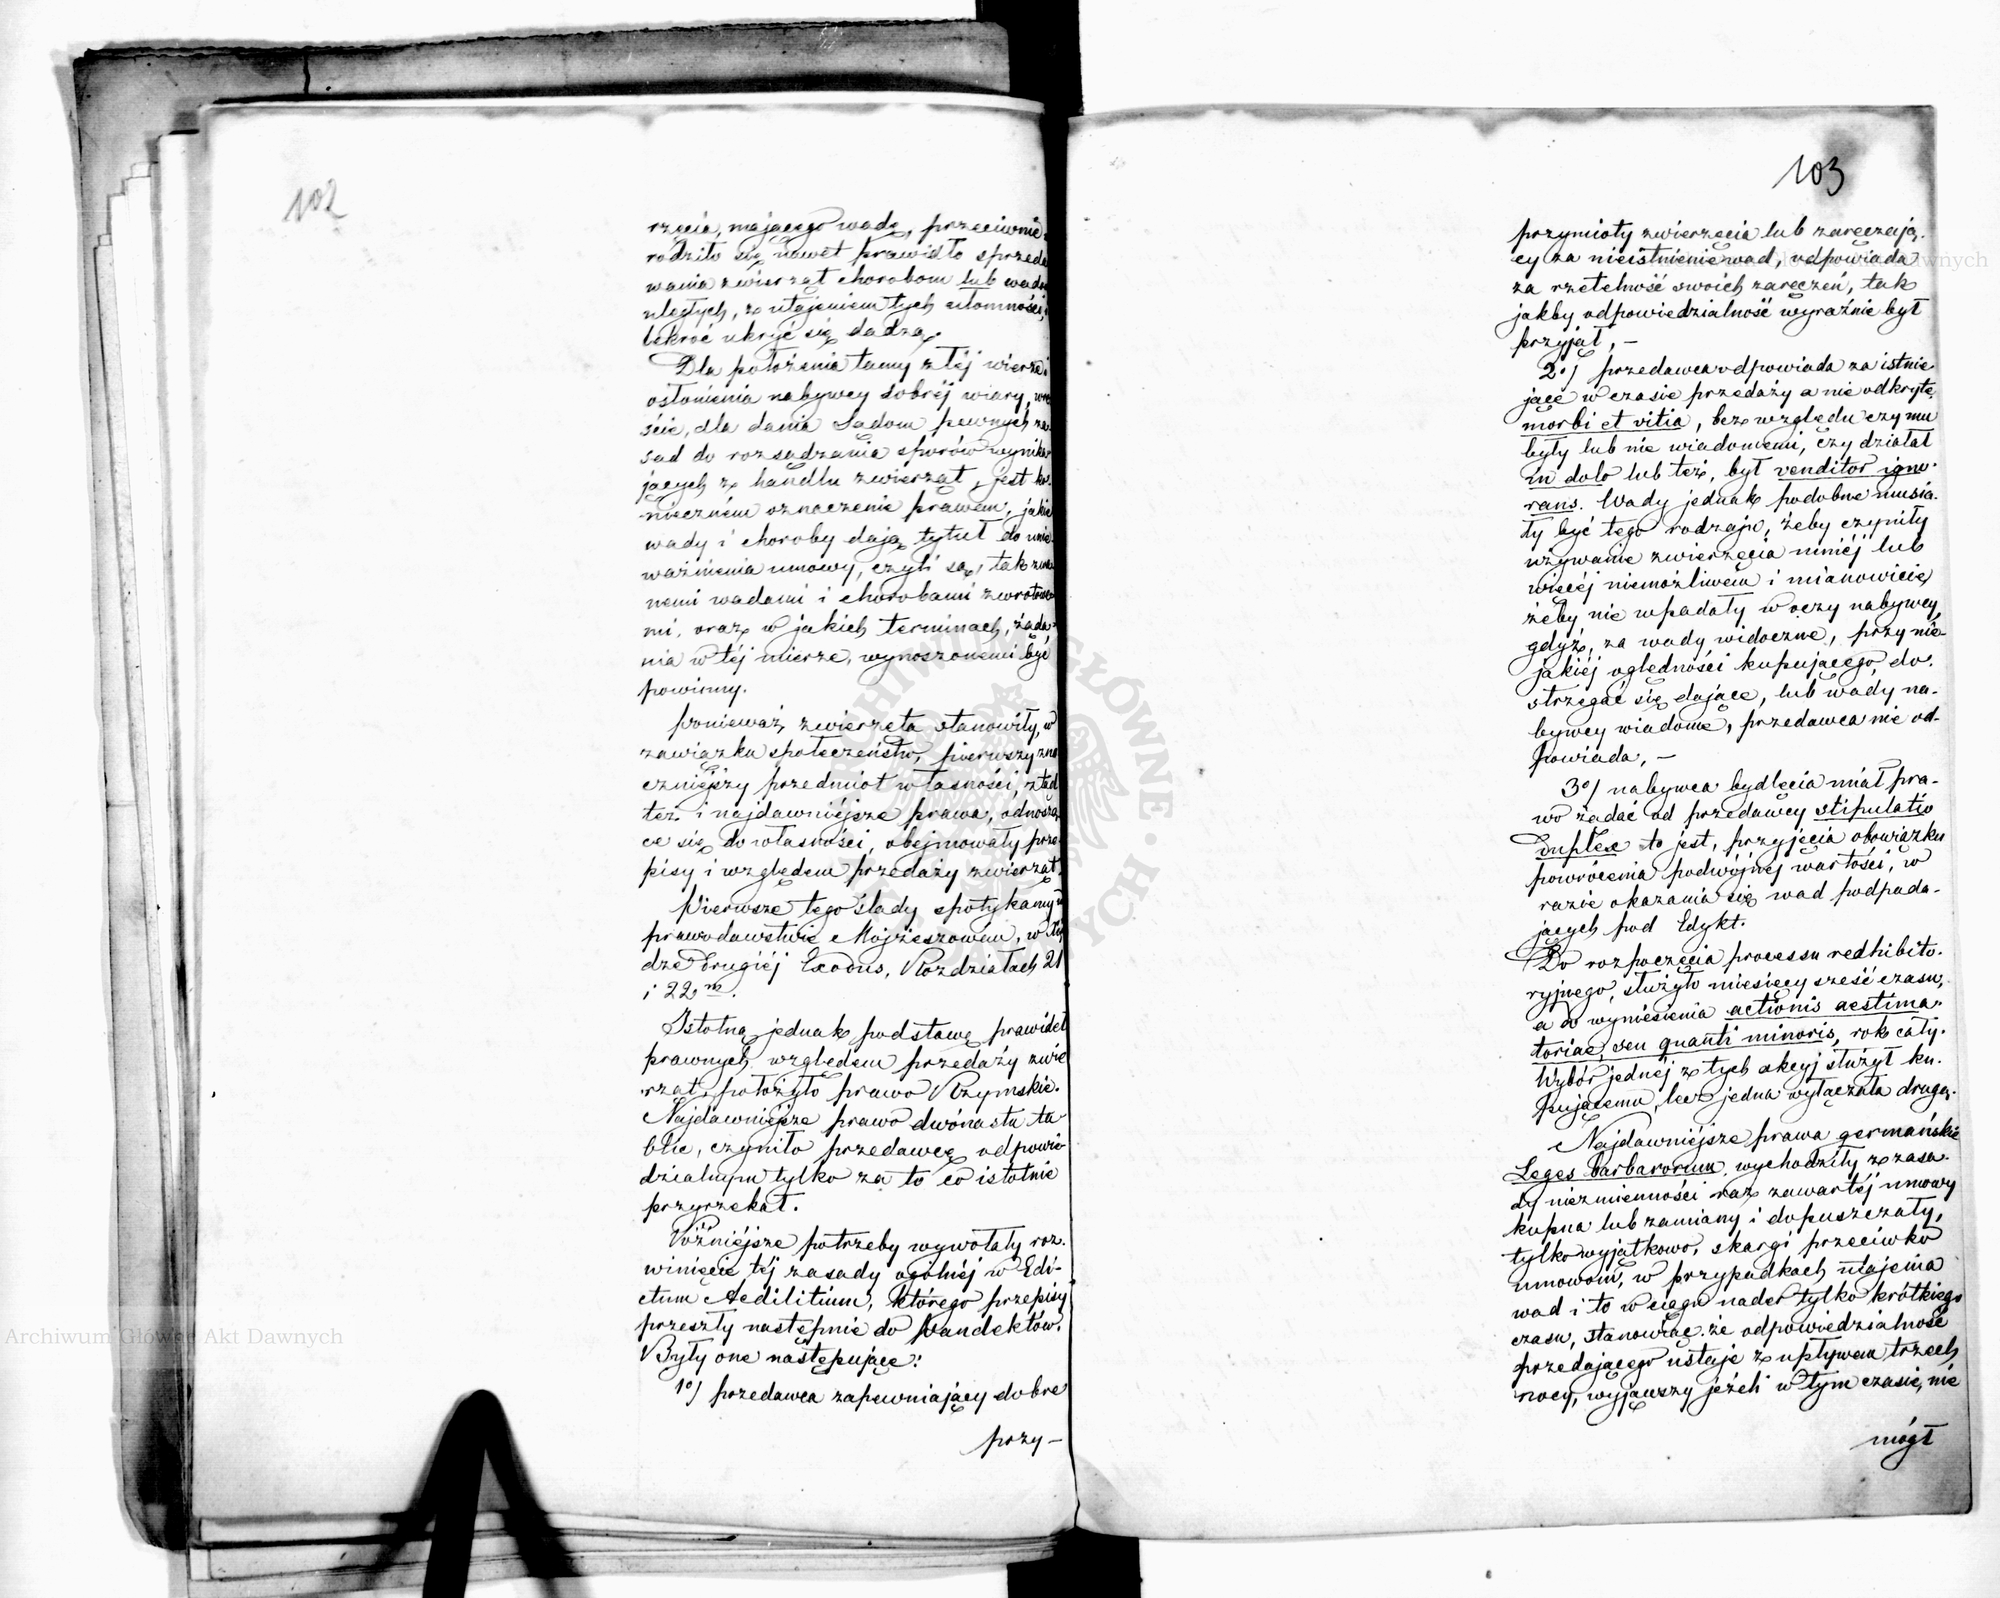 102
rzęcia, mającego wadę, przeciwnie
rodziło się nawet prawidło sprzeda
wania zwierząt chorobom lub wadom
uległych, z utajeniem tych ułomności,
lekroć ukryć się dadzą.
Dla położenia tamy złéj wierze i
osłonienia nabywcy dobréj wiary, wre
ście, dla dania Sądom pewnych za
sad do rozsądzania sporów wynika
jących z handlu zwierząt, jest ko
niecznem oznaczenie prawem, jakie
wady i choroby dają tytuł do unie
ważnienia umowy, czyli są, tak zwa
nemi wadami i chorobami zwrotne
mi, oraz w jakich terminach, żąda-
nia w téj mierze, wynoszonemi być
powinny.
Ponieważ zwierzęta stanowiły, w
zawiązku społeczeństw, pierwszy zna
czniejszy przedmiot własności, ztąd
też i najdawniéjsze prawa, odnoszą
ce się do własności, obejmowały prze
pisy i względem przedaży zwierząt.
Pierwsze tego ślady spotykamy w
prawodawstwie Mojżeszowem, w Xię
dze drugiéj Exodus, Rozdziałach 21
i 22m.
Istotną jednak podstawę prawideł
prawnych względem przedaży zwie
rząt, położyło prawo Rzymskie.
Najdawniejsze prawo dwónastu ta
blic, czyniło przedawcę odpowie-
dzialnym tylko za to co istotnie
przyrzekał.
Późniéjsze potrzeby wywołały roz-
winięcie téj zasady ogólnéj w Edi-
ctum Aedilitium, którego przepisy
przeszły następnie do Pandektów.
Były one następujące:
1o/ przedawca zapewniający dobre
przy-
103
przymioty zwierzęcia lub zaręczają-
cy za nieistnienie wad, odpowiada
za rzetelność swoich zaręczeń, tak
jakby odpowiedzialność wyraźnie był
przyjął, -
2o/ przedawca odpowiada za istnie
jące w czasie przedaży a nie odkryte
morbi et vitia, bez względu czy mu
były lub nie wiadomemi, czy działał
in dolo lub też, był venditor igno-
rans. Wady jednak podobne musia-
ły być tego rodzaju, żeby czyniły
używanie zwierzęcia mniéj lub
więcéj niemożliwem i mianowicie
żeby nie wpadały w oczy nabywcy,
gdyż, za wady widoczne, przy nie-
jakiéj oględności kupującego, do-
strzegać się dające, lub wady na-
bywcy wiadome, przedawca nie od-
powiada, -
3o/ nabywca bydlęcia miał pra-
wo żądać od przedawcy stipulatio
duplex to jest, przyjęcia obowiązku
powrócenia podwójnéj wartości, w
razie okazania się wad podpada-
jących pod Edykt.
Do rozpoczęcia processu redhibito-
ryjnego, służyło miesięcy sześć czasu,
a do wyniesienia actionis aestima-
toriae, seu quanti minoris, rok cały.
Wybór jednéj z tych akcyj służył ku-
pującemu, lecz jedna wyłączała drugą.
Najdawniéjsze prawa germańskie
Leges barbarorum, wychodziły z zasa-
dy niezmienności raz zawartéj umowy
kupna lub zamiany i dopuszczały,
tylko wyjątkowo, skargi przeciwko
umowom, w przypadkach utajenia
wad i to w ciągu nader tylko krótkiego
czasu, stanowiąc że odpowiedzialność
przedającego ustaje z upływem trzech
nocy, wyjąwszy jeżeli w tym czasie, nie
mógł
Archiwum Główne Akt Dawnych